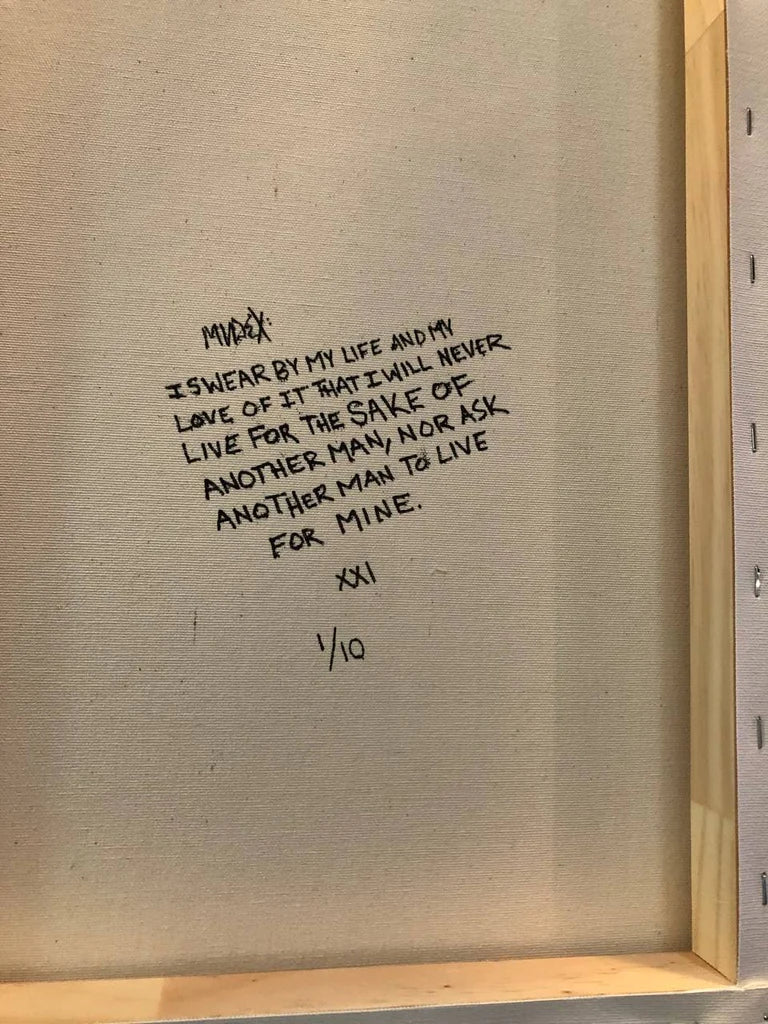 I SWEAR BY MY LIFE AND MY
LOVE OF IT THAT I WILL NEVER
LIVE FOR THE SAKE OF
ANOTHER MAN, NOR ASK
ANOTHER MAN TO LIVE
FOR MINE.
XXI
1/10